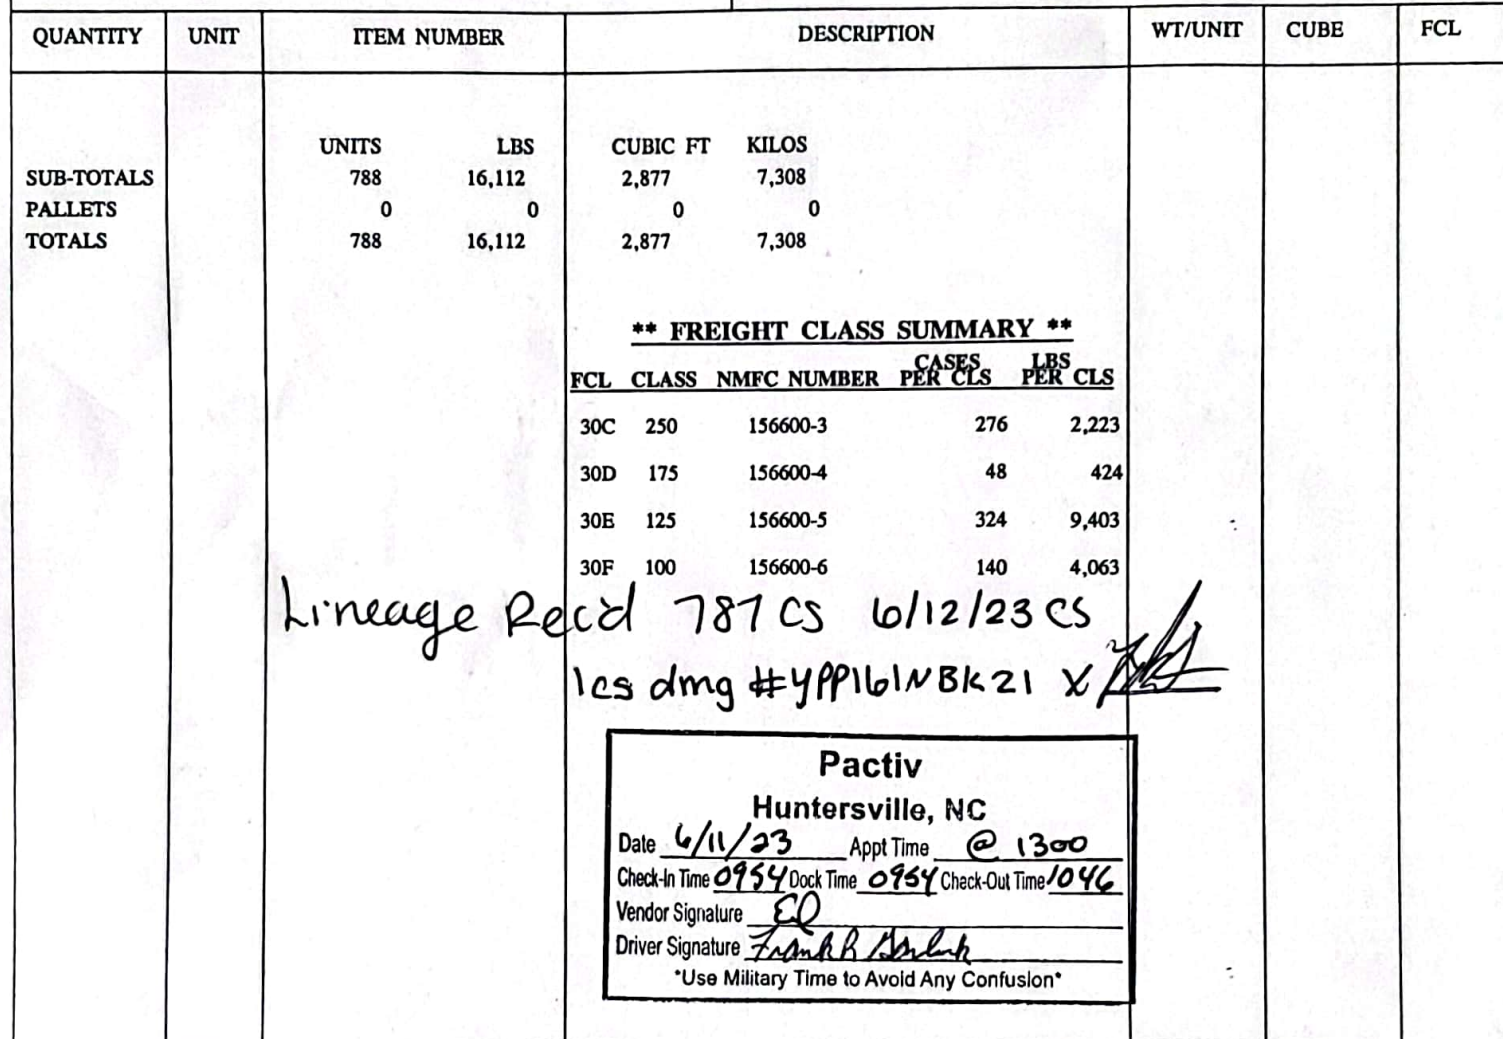 QUANTITY UNIT ITEM NUMBER DESCRIPTION WT/UNIT CUBE FCL
UNITS LBS CUBIC FT KILOS
SUB-TOTALS 788 16,112 2,877 7,308
PALLETS 0 0 0 0
TOTALS 788 16,112 2,877 7,308
** FREIGHT CLASS SUMMARY **
FCL CLASS NMFC NUMBER CASES PER CLS LBS PER CLS
30C 250 156600-3 276 2,223
30D 175 156600-4 48 424
30E 125 156600-5 324 9,403
30F 100 156600-6 140 4,063
Lineage Rec'd 787 CS 6/12/23 CS
1cs dmg #YPP161NBK21 X
Pactiv
Huntersville, NC
Date 6/11/23 Appt Time @ 1300
Check-In Time 0954 Dock Time 0954 Check-Out Time 1046
Vendor Signature
Driver Signature Frank R
*Use Military Time to Avoid Any Confusion*